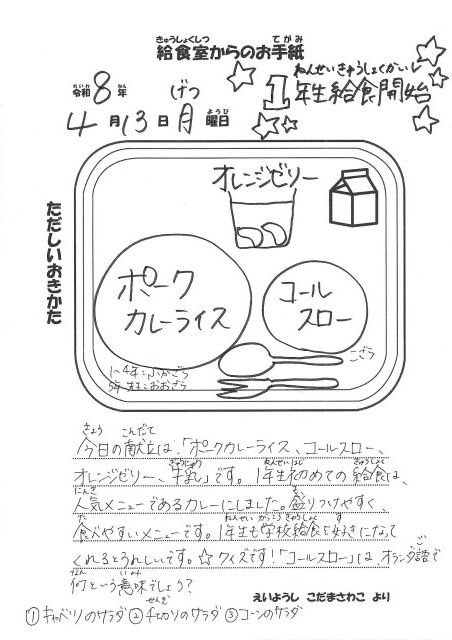 給食室からのお手紙
きゅうしょくしつ てがみ
令和8年
れいわ ねん
げつ
4月13日月曜日
ようび
ねんせいきゅうしょくかいし
1年生給食開始
ただしいおきかた
オレンジゼリー
ポーク
カレーライス
コール
スロー
こざら
1～4年:小かざら
5年～先生:おおざら
きょう こんだて
今日の献立は、「ポークカレーライス、コールスロー、
ぎゅうにゅう ねんせいはじ きゅうしょく
オレンジゼリー、牛乳」です。1年生初めての給食は、
にんき も
人気メニューであるカレーにしました。盛りつけやすく、
た ねんせい がっこうきゅうしょく す
食べやすいメニューです。1年生も学校給食を好きになって
ご
くれるとうれしいです。☆クイズです!「コールスロー」は、オランダ語で
なん いみ
何という意味でしょう?
えいようし こだまさわこ より
①キャベツのサラダ ②千切りのサラダ ③コーンのサラダ